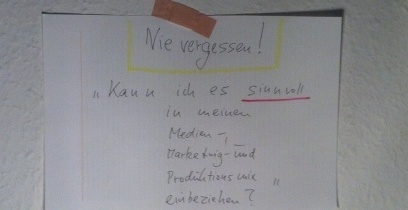 Nie vergessen!
„Kann ich es sinnvoll
in meinen
Medien-,
Marketing- und
Produktionsmix
einbeziehen?"